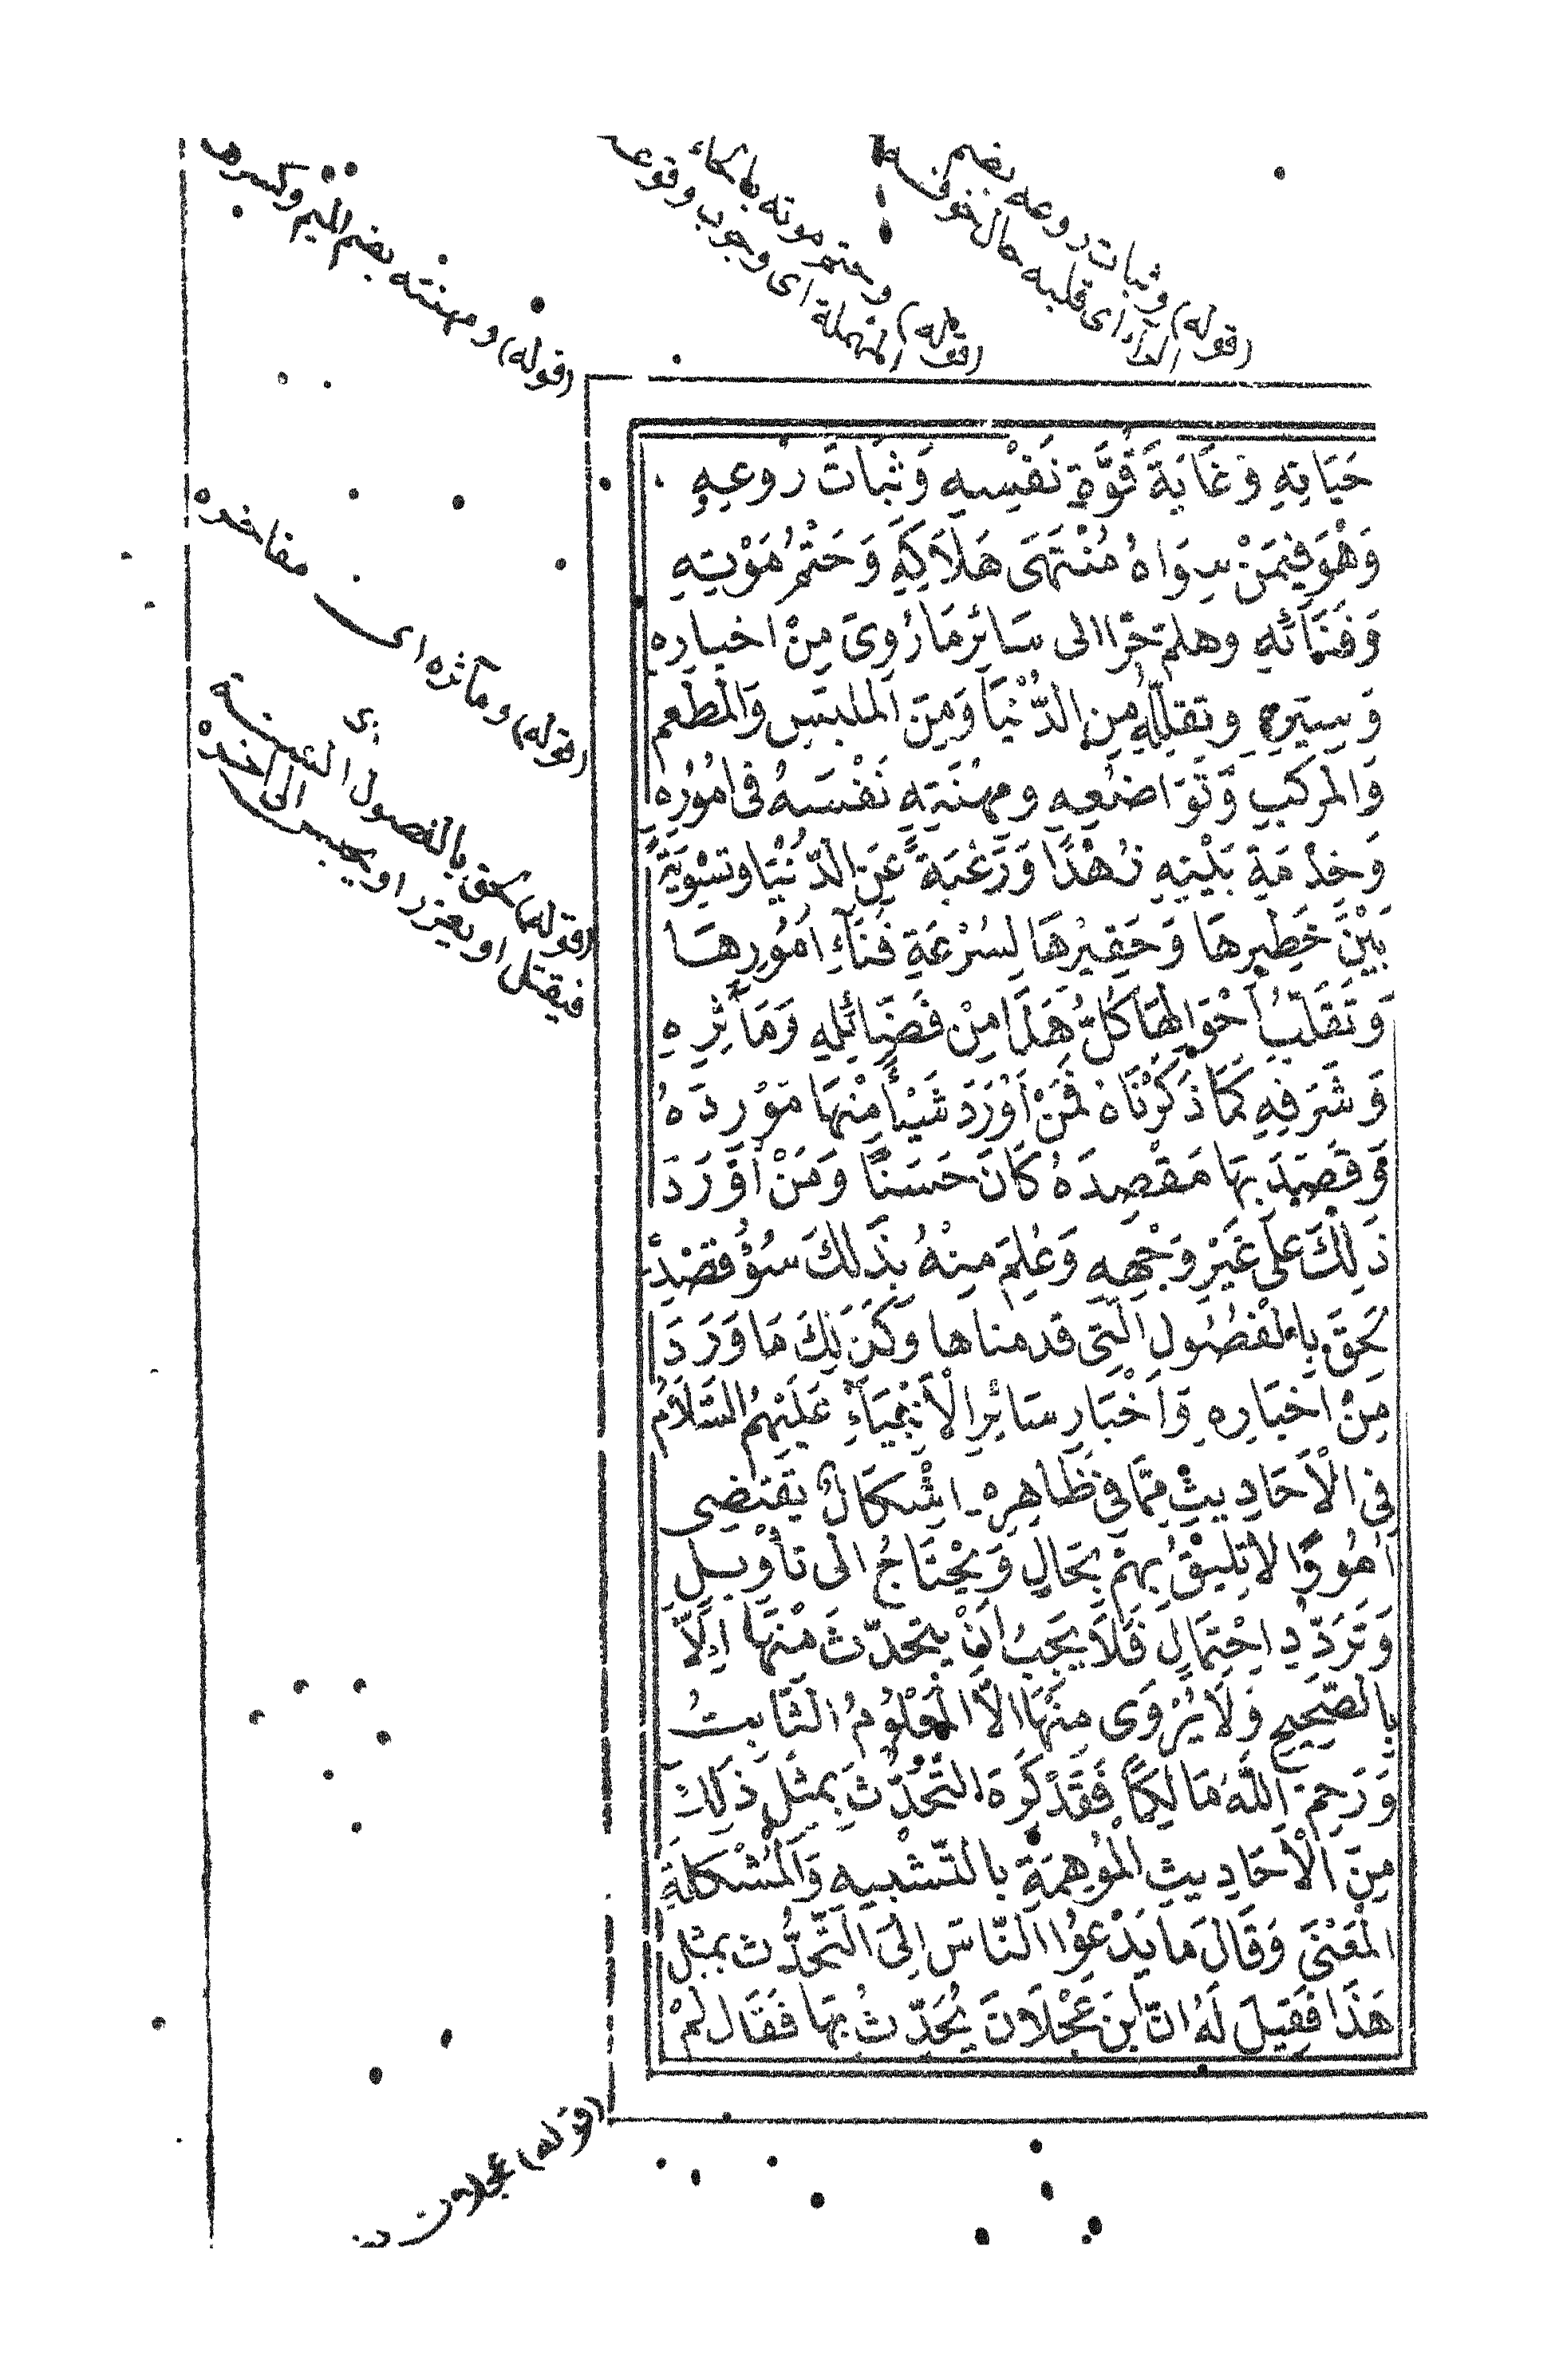 (قوله) وثبات روعه بضم
الراء اى قلبه حال خوفه
(قوله) وحتم موته بالحاء
المهملة اى وجوب وقوعه
(قوله) ومهنته بضم الميم وكسرها
(قوله) ومآثره اى مفاخره
(قوله) لحق بالفصول
فيقتل او يعزر او يحبس الى آخره
حَيَاتِهِ وَغَايَةَ قُوَّةِ نَفْسِهِ وَثَبَاتَ رُوعِهِ
وَهْوَ فِيمَنْ سِوَاهُ مُنْتَهَى هَلَاكِهِ وَحَتْمُ مَوْتِهِ
وَفَنَائِهِ وهلم جرّا الى سَائِرِ مَا رُوِىَ مِنْ اخبارِهِ
وَسِيَرِهِ وتقللِهِ مِن الدُّنْيَا وَمِنَ الملبَسِ وَالمَطْعَمِ
وَالمَركَبِ وَتَوَاضُعِهِ ومِهْنَتِهِ نَفْسَهُ فى اُمُورِهِ
وَخِدْمَةِ بَيْتِهِ زُهْدًا وَرَغْبَةً عَنِ الدّنْيَا وتسْوِيَةً
بَيْنَ خَطِيرِهَا وَحَقِيْرِهَا لِسُرْعَةِ فَنَآءِ اُمُورِهَا
وَتَقَلُّبِ اَحْوَالِهَا كُلُّ هَذَا مِنْ فَضَائِلِهِ وَمَآثِرِهِ
وَشَرَفِهِ كَمَا ذَكَرْنَاهُ فَمَنْ اَوْرَدَ شَيْئًا مِنْهَا مَوْرِدَهُ
وَقَصَدَ بِهَا مَقْصِدَهُ كَانَ حَسَنًا وَمَنْ اَوْرَدَ
ذَلِكَ عَلَى غَيْرِ وَجْهِهِ وَعُلِمَ مِنْهُ بِذَلكَ سُوْءُ قصْدِهِ
لَحِقَ بِالْفُصُولِ الَّتِى قدمناها وَكَذَلِكَ مَا وَرَدَ
مِنْ اخبَارِهِ وَاَخْبَارِ سَائِرِ الْاَنْبِيَآءِ عَلَيْهِمُ السَّلَامُ
فِى الْاَحَادِيثِ مِمَّا فِى ظَاهِرِهِ اِشْكَالٌ يَقتَضِى
اُمُورًا لا تَلِيْقُ بِهِمْ بِحَالٍ وَيَحْتَاجُ الَى تَأْوِيلٍ
وَتَرَدّدِ اِحْتِمَالٍ فَلَا يَجِبُ اَنْ يتحدّثَ مِنْهَا اِلَّا
بالصَّحِيحِ وَلَا يُرْوَى مِنْهَا الاَّ الْمَعْلُومُ الثَّابِتُ
وَرَحِمَ اللَّهُ مَالِكًا فَقَدْ كَرِهَ التَّحَدُّثَ بِمثلِ ذَلِكَ
مِنَ الْاَحَادِيثِ الْمُوهِمَةِ بِالتَّشْبِيهِ وَالْمُشْكلَةِ
الْمَعْنَى وَقَالَ مَا يَدْعُوا النَّاسَ اِلَى التَّحَدُّثِ بمثلِ
هَذَا فَقِيلَ لَهُ انّ ابْنَ عَجْلَانَ يُحَدِّثُ بِهَا فَقَالَ لمْ
(قوله) عجلان